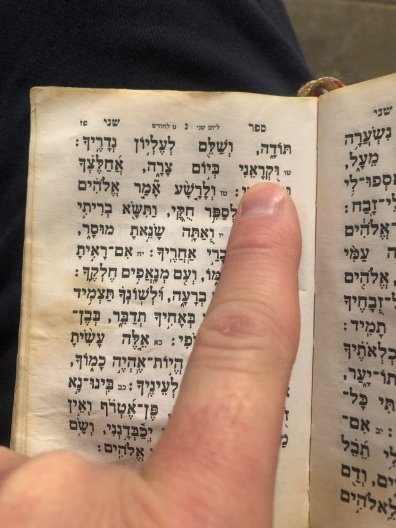 ספר ליום שני נ ט לחודש שני פז
תּוֹדָה, וְשַׁלֵּם לְעֶלְיוֹן נְדָרֶיךָ:
טו וּקְרָאֵנִי בְּיוֹם צָרָה, אֲחַלֶּצְךָ
טז וְלָרָשָׁע אָמַר אֱלֹהִים
לְסַפֵּר חֻקָּי, וַתִּשָּׂא בְרִיתִי
וְאַתָּה שָׂנֵאתָ מוּסָר,
אַחֲרֶיךָ: יח אִם־רָאִיתָ
וְעִם מְנָאֲפִים חֶלְקֶךָ:
בְרָעָה, וּלְשׁוֹנְךָ תַּצְמִיד
בְּאָחִיךָ תְדַבֵּר, בְּבֶן־
כא אֵלֶּה עָשִׂיתָ
הֱיוֹת־אֶהְיֶה כָמוֹךָ,
לְעֵינֶיךָ: כב בִּינוּ־נָא
פֶּן־אֶטְרֹף וְאֵין
יְכַבְּדָנְנִי, וְשָׂם
אֱלֹהִים:
שני
נִשְׂעֲרָה
מֵעָל,
אִסְפוּ־לִי
זָבַח:
אֱלֹהִים
עַמִּי
אֱלֹהִים
תָמִיד:
יָעַר,
אִם־
תֵבֵל
וְדַם
לֵאלֹהִים